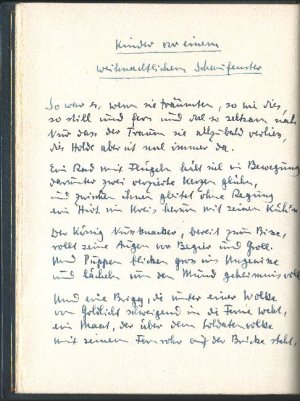 Kinder vor einem
weihnachtlichen Schaufenster
So war es, wenn sie träumten, so wie dies,
so still und fern und doch so seltsam nah
Nur dass der Traum sie allzubald verliess,
dies Holde aber ist noch immer da.
Ein Rad mit Flügeln hält sich in Bewegung
darunter zwei verzierte Kerzen glühn,
und zwischen ihnen gleitet ohne Regung
ein Hirt im Kreis herum mit seinen Küh'n
Der König Nussknacker, bereit zum Bisse,
rollt seine Augen vor Begier und Groll.
Und Puppen blicken gross ins Ungewisse
und lächeln um den Mund geheimnisvoll
Und eine Brigg, die unter einer Wolke
von Goldlicht schweigend in die Ferne weht,
ein Maat, der über dem Soldatenvolke
mit seinem Fernrohr auf der Brücke steht,